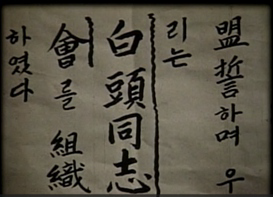 盟誓하며 우
리는
白頭同志
會를 組織
하였다